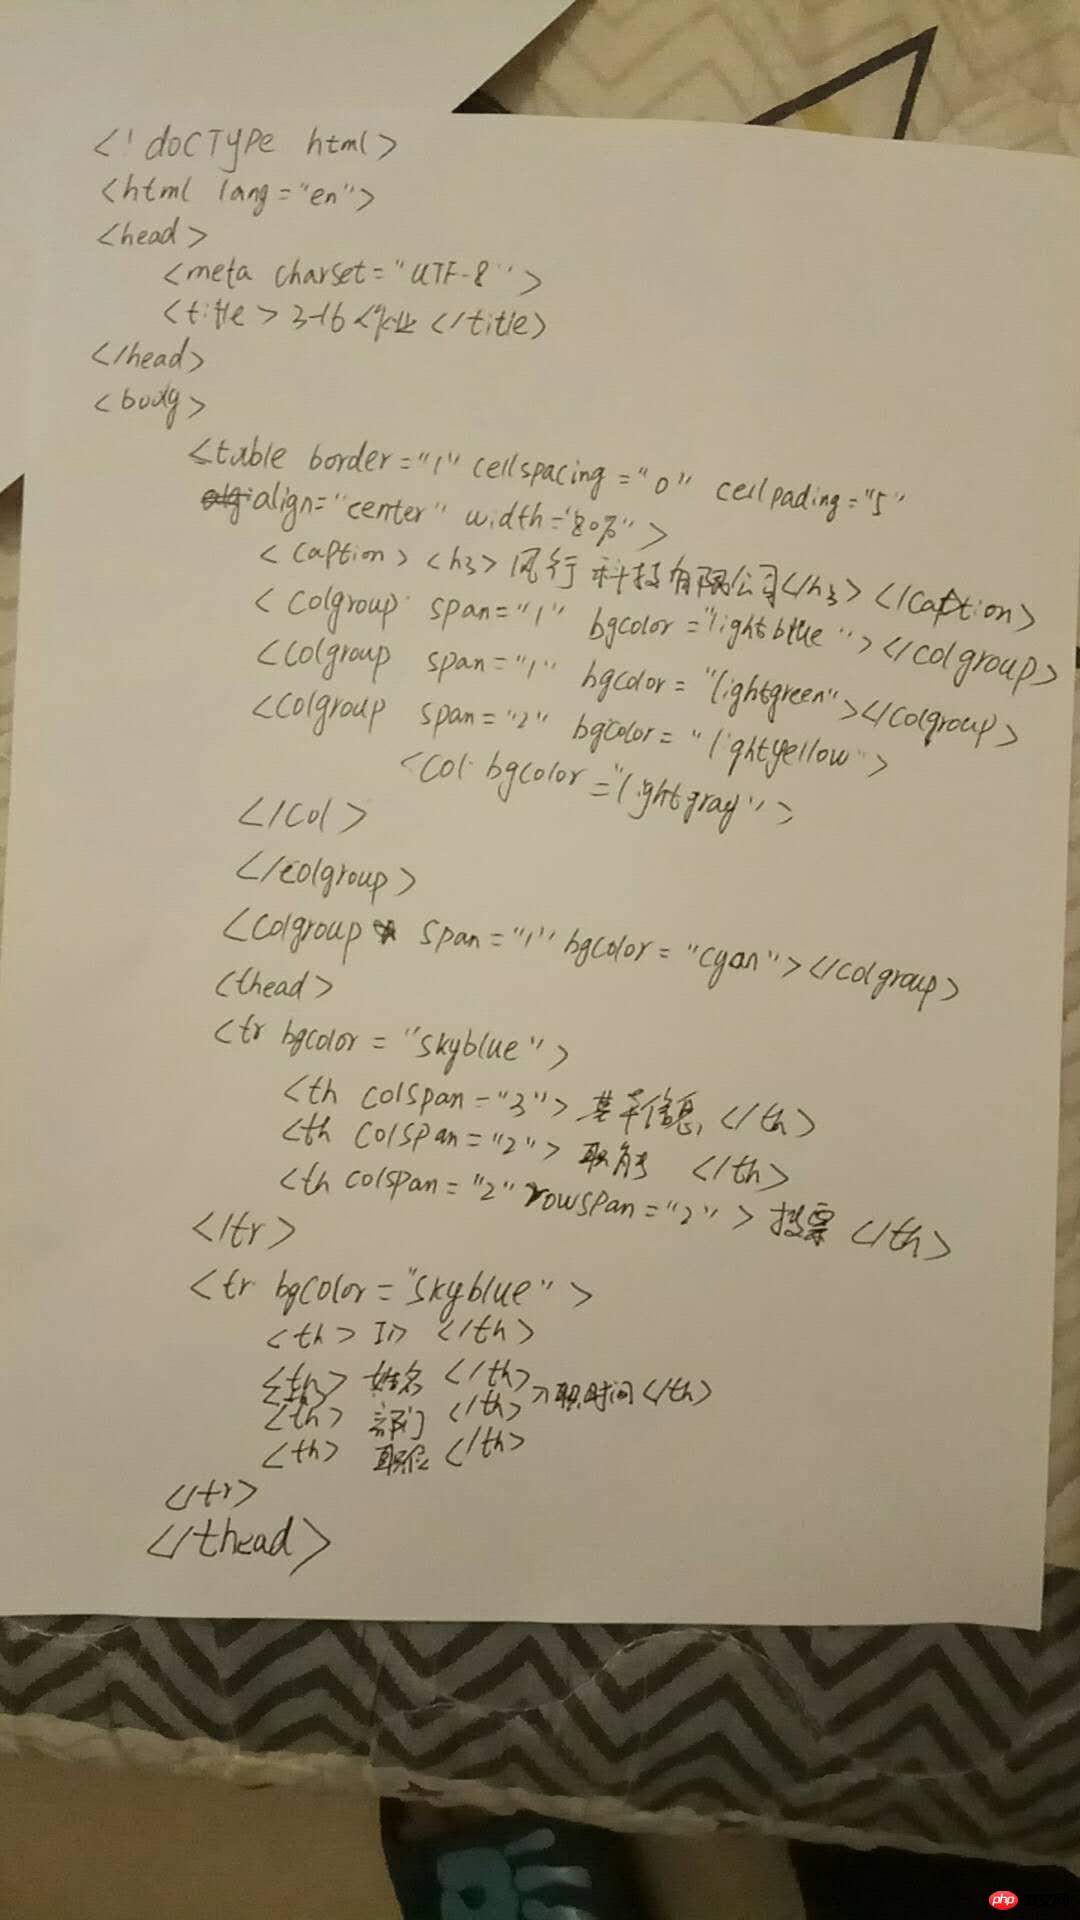 <!docTYPe html>
<html lang="en">
<head>
<meta charset="UTF-8">
<title>3-16作业</title>
</head>
<body>
<table border="1" cellspacing="0" cellpading="5"
align="center" width="80%">
<caption><h3>风行科技有限公司</h3></caption>
<colgroup span="1" bgcolor="lightblue"></colgroup>
<colgroup span="1" bgcolor="lightgreen"></colgroup>
<colgroup span="2" bgcolor="lightyellow">
<col bgcolor="lightgray">
</col>
</colgroup>
<colgroup span="1" bgcolor="cyan"></colgroup>
<thead>
<tr bgcolor="skyblue">
<th colspan="3">基本信息</th>
<th colspan="2">职能</th>
<th colspan="2" rowspan="2">投票</th>
</tr>
<tr bgcolor="skyblue">
<th>ID</th>
<th>姓名</th>
入职时间</th>
<th>部门</th>
<th>职位</th>
</tr>
</thead>
php